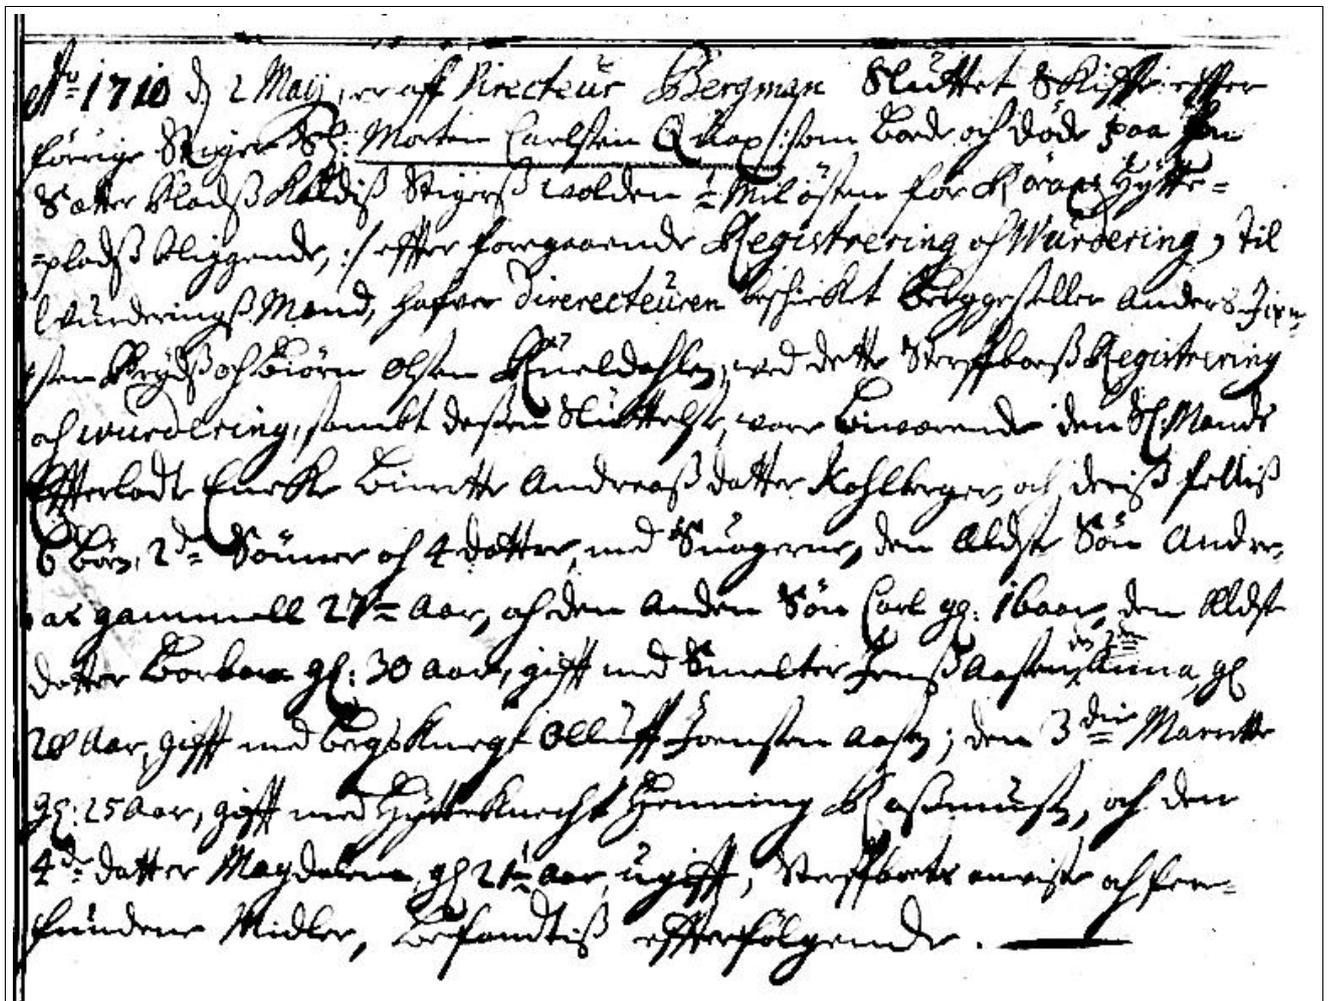 Ao 1710 d 2 Maij, er aff Directeur Bergman Sluttet Skiffte effter
forige Stiger Sl: Morten Carlsen Quap /: som boede och døde paa sin
Sætter Pladss kaldiss Stigerss wolden 1/2 Miil østen for Røraas Hytte=
=pladss bliggende, :/ effter foregaaende Registrering och Wurdering, til
Wurderingss Mænd, hafver Direrecteuren beschicket Berggeseller Anders
sten och Biørn Olsen, ved dette Sterffboess Registrering
och wurdering, sambt dessen Sluttelse, vare biwærende den Sl: Mands
Effterladte Encke Birette Andreæss datter Kohlberger, och deriss felliss
6 børn, 2de Sønner och 4 døttre, med Suogerne, den Eldste Søn Andre=
as gammell 27 Aar, och den anden Søn Carl gl: 16 aar, den Eldste
datter Barbara gl: 30 aar, gifft med Smelter Jenss Aasen, den 2den Anna, gl
28 Aar, gifft med bergsKnegt Olluff Joensen Aasen; den 3die Marette
gl: 25 Aar, gifft med HytteKnecht Henning Rassmuss, och den
4de datter Magdalena, gl 21 aar, ugifft, Sterffboets anviste och for=
fundene Midler, befandtiss effterfølgende.